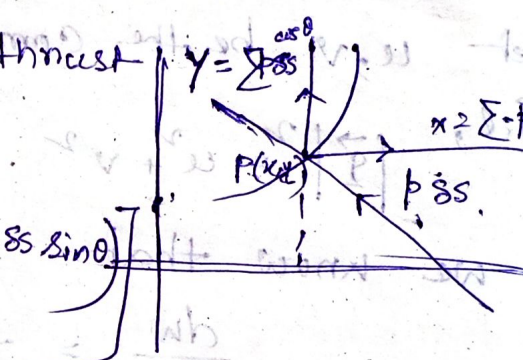 thrust
Y = ∑pδs cosθ
x = ∑-p
P(x,y)
pδs.
δs sinθ)]